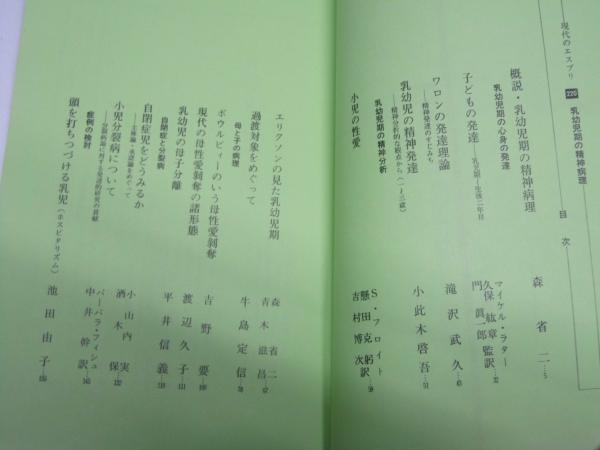 現代のエスプリ 220 乳幼児期の精神病理
目次
概説・乳幼児期の精神病理 森省二…5
乳幼児期の心身の発達
子どもの発達 ――乳児期〜生後二年目 マイケル・ラター
久保紘章
門眞一郎 監訳
ワロンの発達理論 ――精神発達のすじみち 滝沢武久
乳幼児の精神発達 ――精神分析的な観点から(一〜三歳) 小此木啓吾
乳幼児期の精神分析
小児の性愛 S・フロイト
懸田克躬
吉村博次 訳
エリクソンの見た乳幼児期 森省二
過渡対象をめぐって 青木滋昌
母と子の病理
ボウルビィーのいう母性愛剝奪 牛島定信
現代の母性愛剝奪の諸形態 吉野要
乳幼児の母子分離 渡辺久子
自閉症と分裂病
自閉症児をどうみるか 平井信義
小児分裂病について 小山内実
酒木保
症例の検討
バーバラ・フィシュ
中井幹 訳
頭を打ちつづける乳児(ホスピタリズム) 池田由子